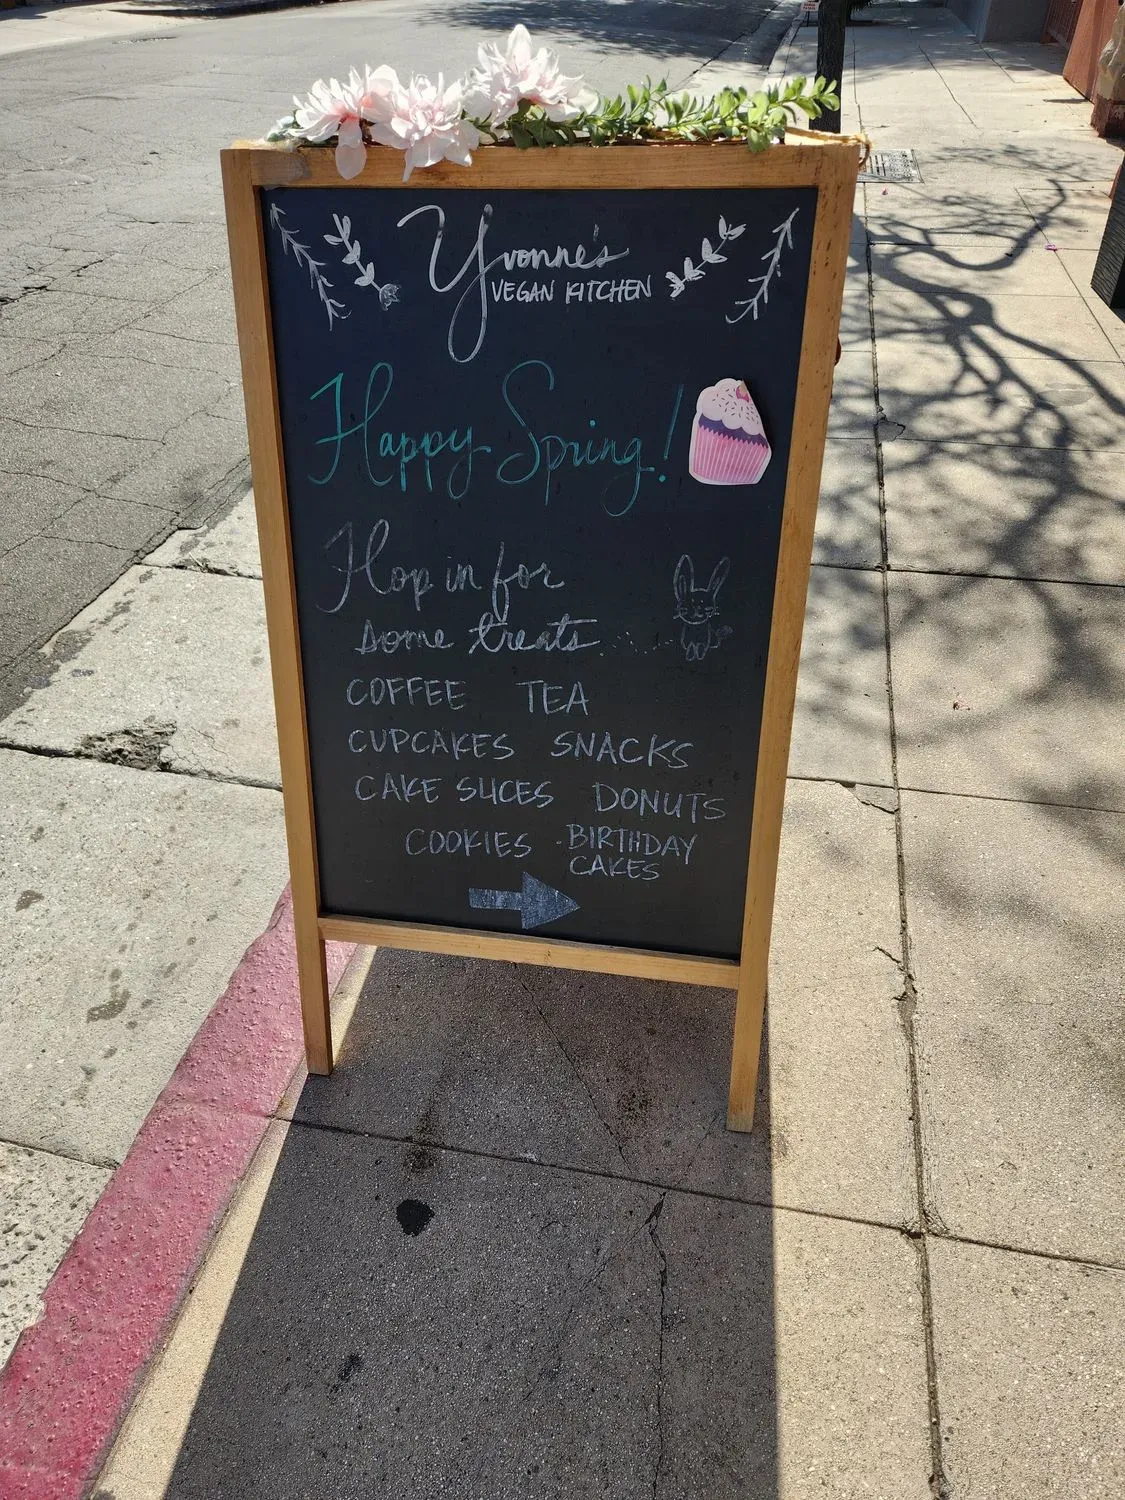 Yvonne's
VEGAN KITCHEN
Happy Spring!
Hop in for
some treats.....
COFFEE TEA
CUPCAKES SNACKS
CAKE SLICES DONUTS
COOKIES · BIRTHDAY
CAKES